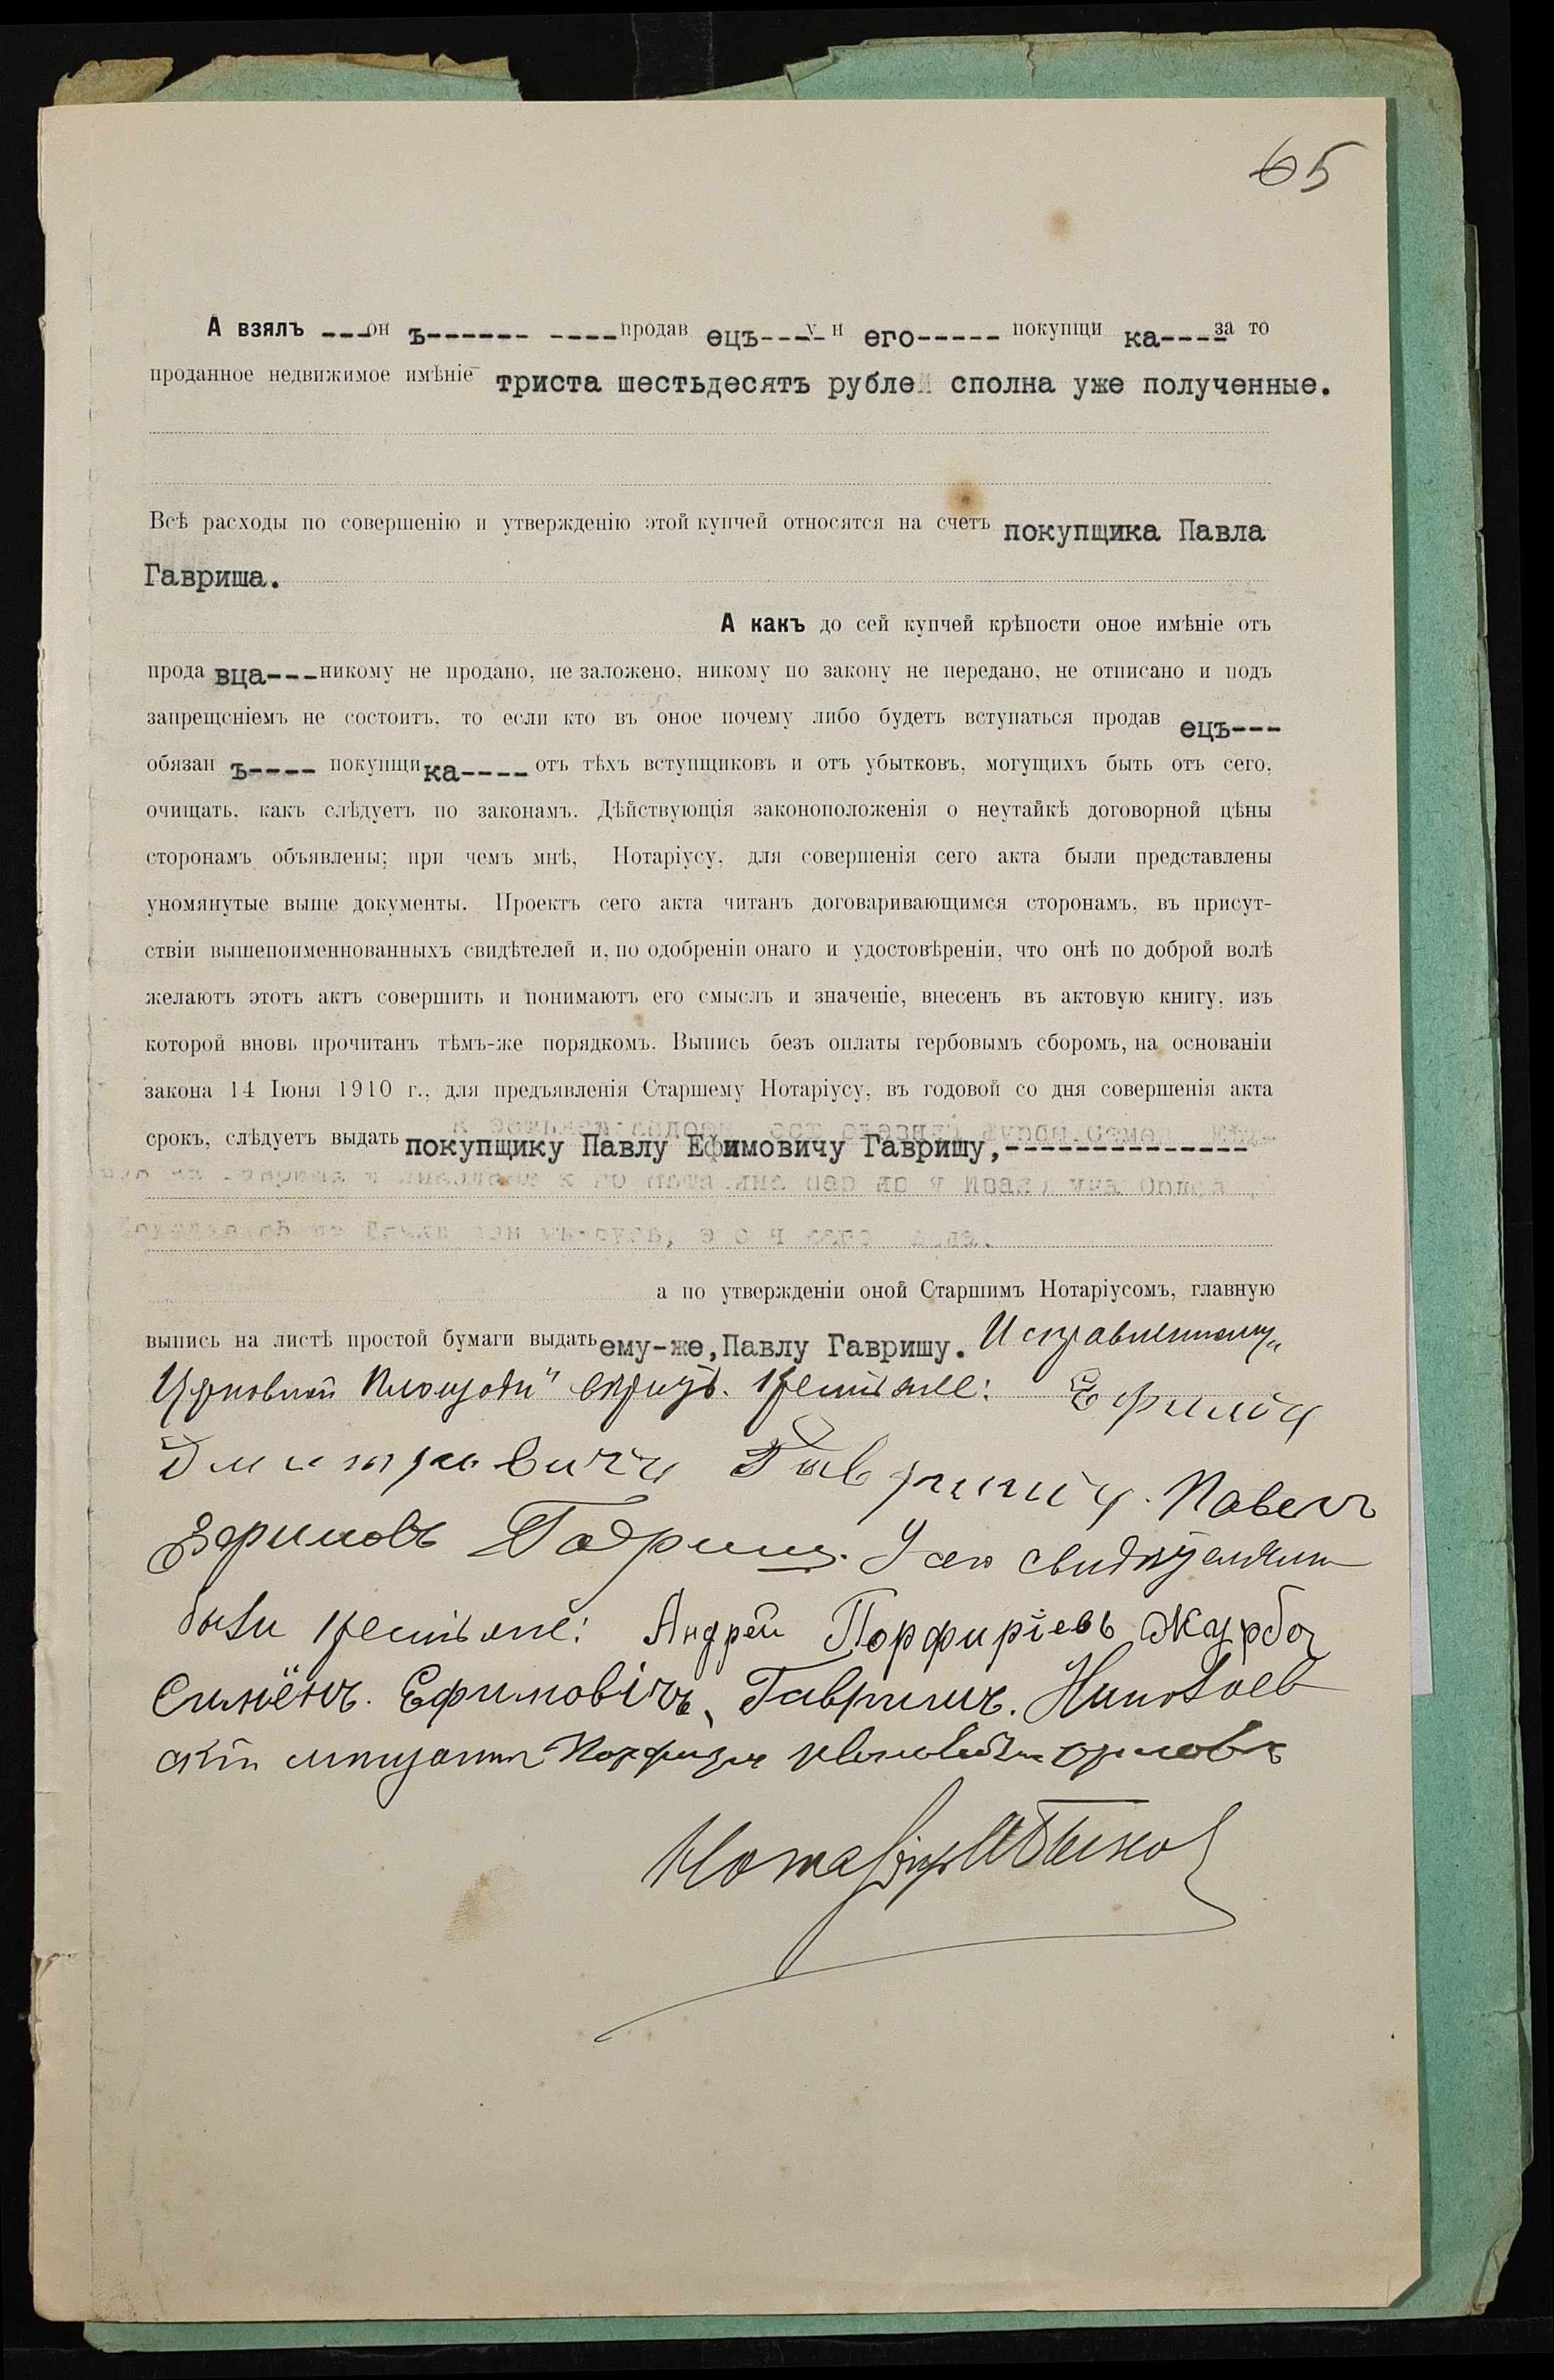 65
А взялъ ---он ъ------ ----продав ецъ----у н его----- покупщи ка----за то
проданное недвижимое имѣніе триста шестьдесятъ рублей сполна уже полученные.
Всѣ расходы по совершенію и утвержденію этой купчей относятся на счетъ покупщика Павла
Гавриша.
А какъ до сей купчей крѣпости оное имѣніе отъ
прода вца---никому не продано, не заложено, никому по закону не передано, не отписано и подъ
запрещеніемъ не состоитъ, то если кто въ оное почему либо будетъ вступаться продав ецъ---
обязан ъ---- покупщи ка---- отъ тѣхъ вступщиковъ и отъ убытковъ, могущихъ быть отъ сего,
очищать, какъ слѣдуетъ по законамъ. Дѣйствующія законоположенія о неутайкѣ договорной цѣны
сторонамъ объявлены; при чемъ мнѣ, Нотаріусу, для совершенія сего акта были представлены
упомянутые выше документы. Проектъ сего акта читанъ договаривающимся сторонамъ, въ присут-
ствіи вышепоименнованныхъ свидѣтелей и, по одобреніи онаго и удостовѣреніи, что онѣ по доброй волѣ
желаютъ этотъ актъ совершить и понимаютъ его смыслъ и значеніе, внесенъ въ актовую книгу, изъ
которой вновь прочитанъ тѣмъ-же порядкомъ. Выпись безъ оплаты гербовымъ сборомъ, на основаніи
закона 14 Іюня 1910 г., для предъявленія Старшему Нотаріусу, въ годовой со дня совершенія акта
срокъ, слѣдуетъ выдать покупщику Павлу Ефимовичу Гавришу,--------------
а по утвержденіи оной Старшимъ Нотаріусомъ, главную
выпись на листѣ простой бумаги выдать ему-же,Павлу Гавришу. Исправленному „
Церковной площади" вѣрить. Крестьяне: Ефимъ
Дмитриевичъ Гавришъ. Павелъ
Ефимовъ Гавриш. У сего свидѣтелями
были крестьяне: Андрей Порфиріевъ Журба
Симёнъ. Ефимовічъ, Гавришъ. Николаев
скій мѣщанинъ Порфирій Орловъ
Нотаріусъ Быков